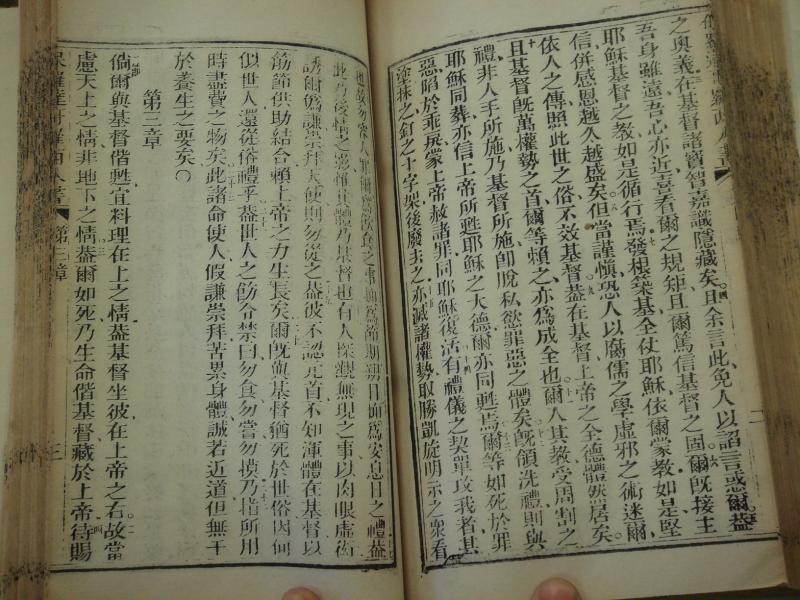 之奧義在基督諸寶智嘉識隱藏矣且余言此免人以謟言惑爾蓋
吾身雖遠吾心亦近喜看爾之規矩且爾篤信基督之固爾旣接主
耶穌基督之教如是循行焉發根築基全仗耶穌依爾蒙教如是堅
信併感恩越久越盛矣但當謹愼恐人以腐儒之學虛邪之術迷爾
依人之傳照此世之俗不效基督蓋在基督上帝之全德體然居矣
且基督旣萬權勢之首爾等賴之亦爲成全也爾入其教受周割之
禮非人手所施乃基督所施卽脫私慾罪惡之體矣旣領洗禮則與
耶穌同葬亦信上帝所甦耶穌之大德爾亦同甦焉爾等如死於罪
惡陷於乖戾蒙上帝赦諸罪同耶穌復活有禮儀之契單攻我者基
塗抹之釘之十字架後廢去之亦滅諸權勢取勝凱旋明示之衆看
也故勿容人罪爾爲飲食之事抑爲節期朔日抑爲安息日之禮蓋
此乃後情之影惟其體乃基督也有人探覜無現之事以肉眼虛衒
誘爾僞謙崇拜天使則勿從之蓋彼不認元首不知渾體在基督以
筋節供助結合賴上帝之力生長矣爾旣與基督猶死於世俗因何
似世人還從俗禮乎蓋世人之飭令禁曰勿食勿嘗勿摸乃指所用
時盡費之物矣此諸命使人假謙崇拜苦累身體誠若近道但無干
於養生之要矣○
第三章
倘爾與基督偕甦宜料理在上之情蓋基督坐彼在上帝之右故當
慮天上之情非地下之情蓋爾如死乃生命偕基督藏於上帝待賜
第三章
三